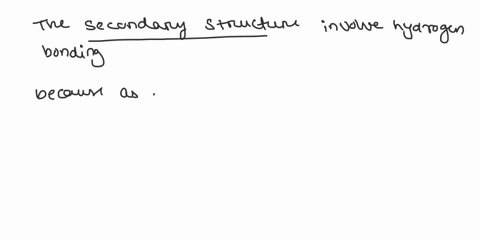 The secondary structure involve hydrogen
bonding
because as .